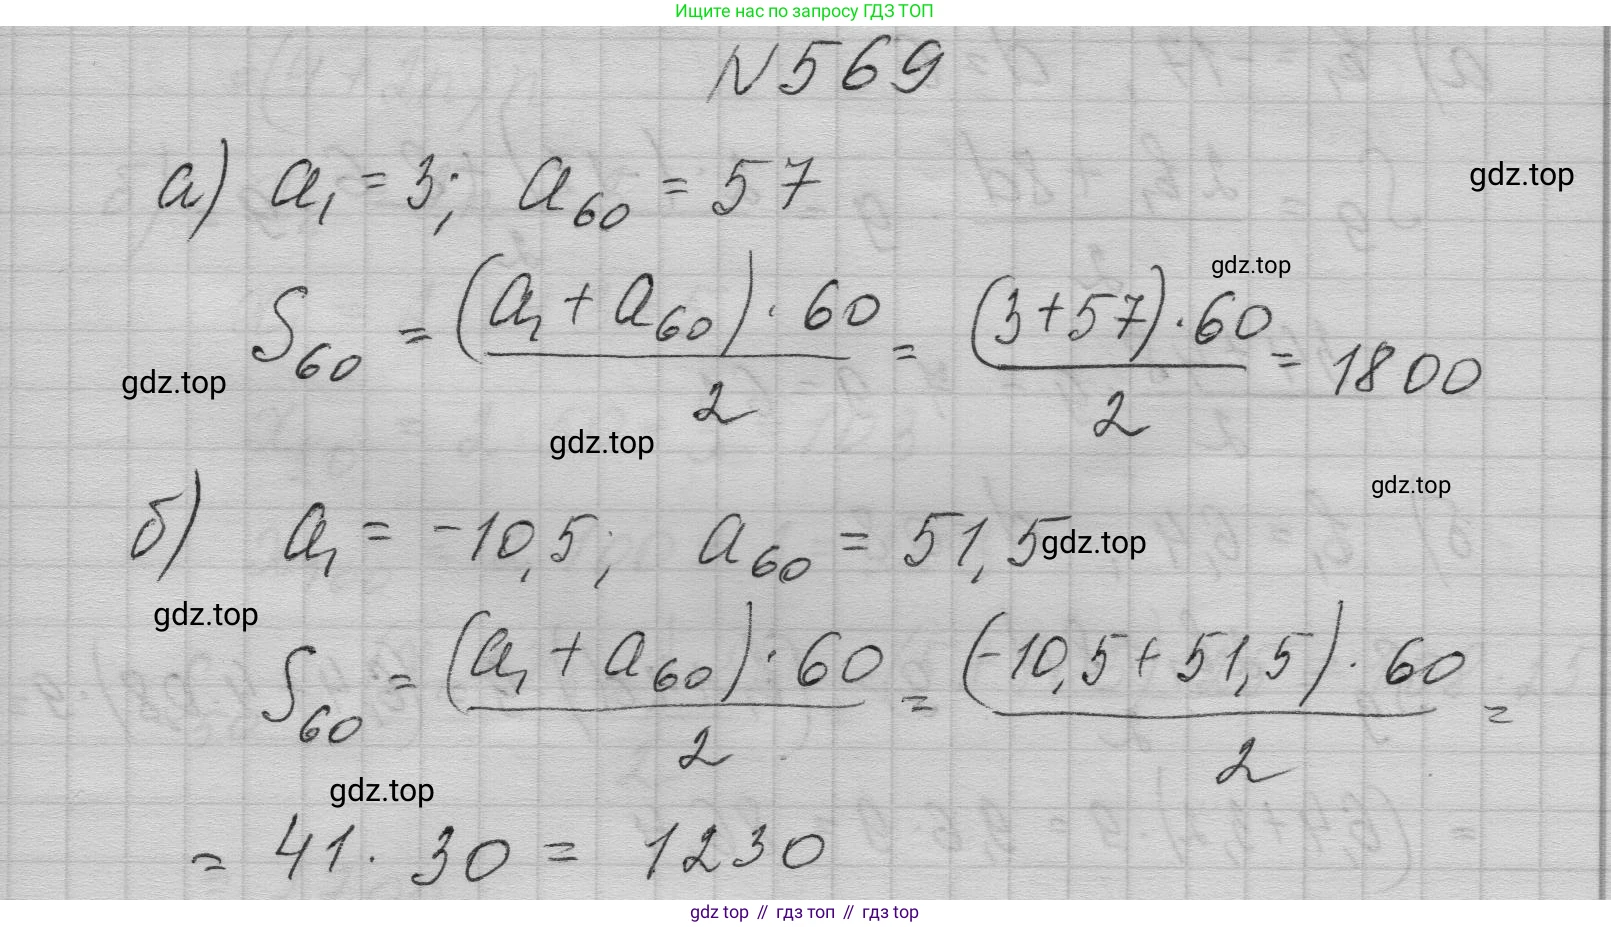 Ищите нас по запросу ГДЗ ТОП
N 569
а) a₁ = 3; a₆₀ = 57
gdz.top
gdz.top
S₆₀ = (a₁ + a₆₀) · 60 / 2 = (3 + 57) · 60 / 2 = 1800
gdz.top
gdz.top
gdz.top
б) a₁ = -10,5; a₆₀ = 51,5
gdz.top
gdz.top
S₆₀ = (a₁ + a₆₀) · 60 / 2 = (-10,5 + 51,5) · 60 / 2 =
gdz.top
= 41 · 30 = 1230
gdz top // гдз топ // гдз top